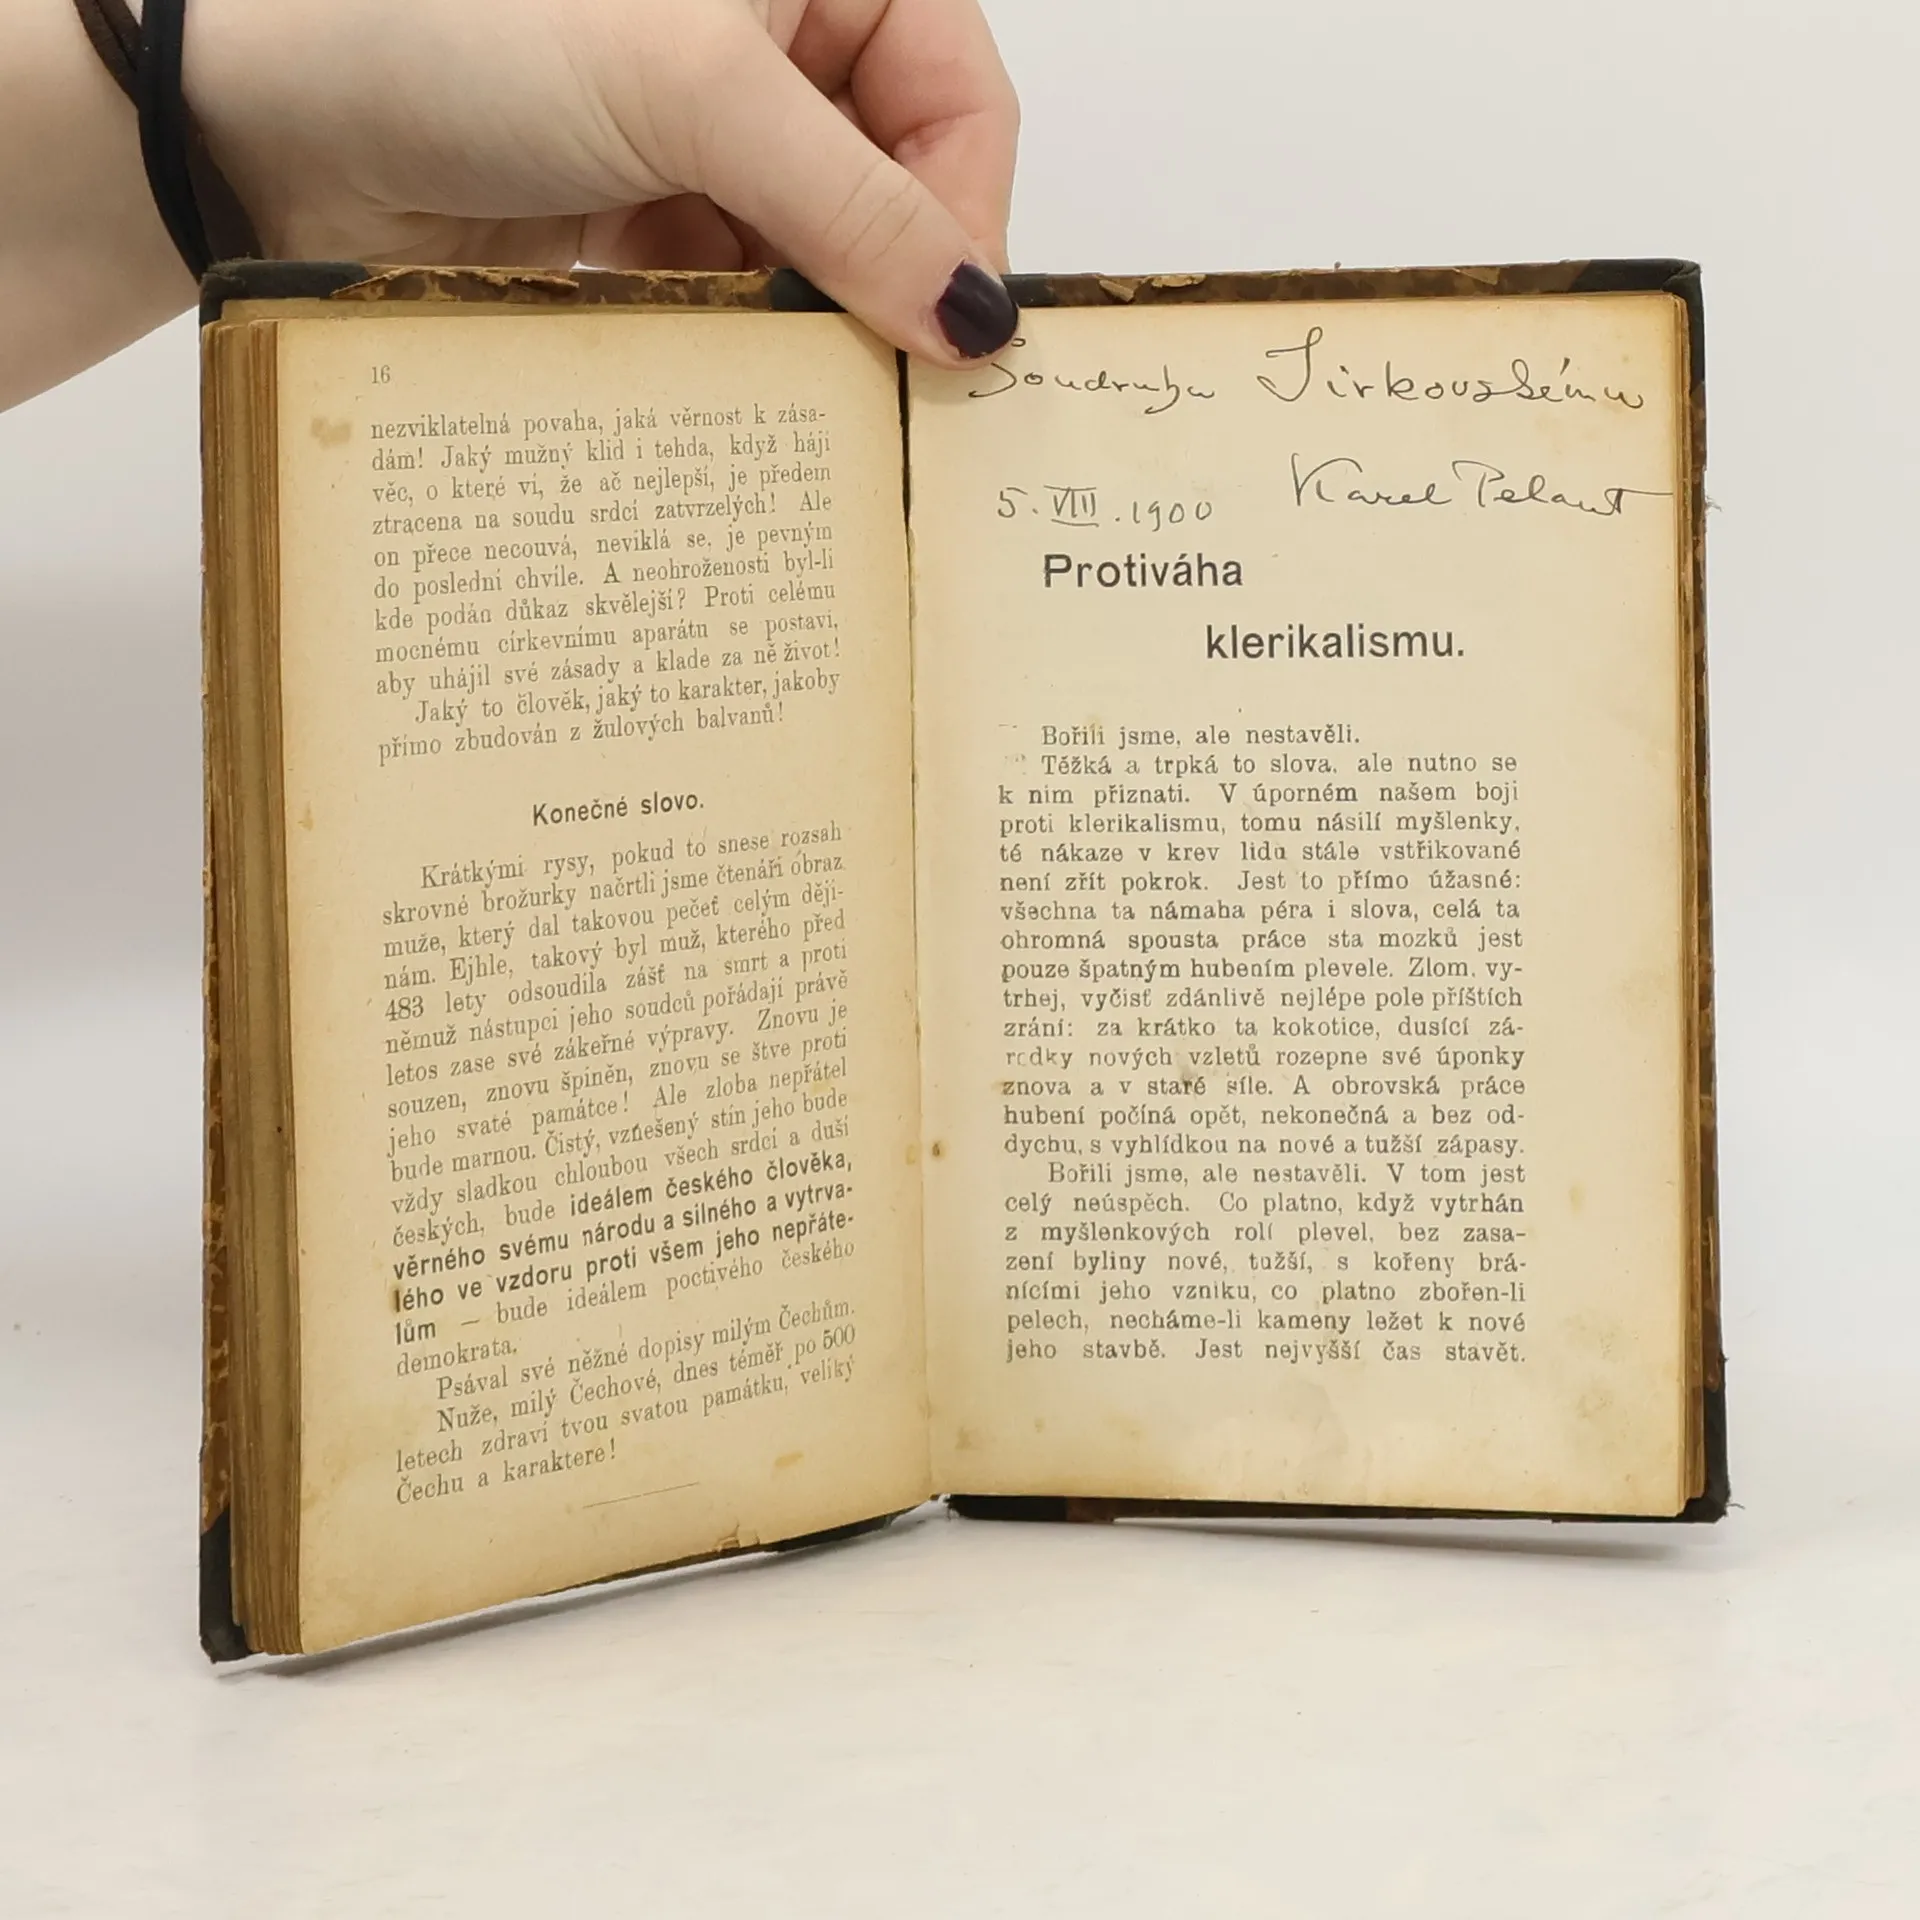 16
nezviklatelná povaha, jaká věrnost k zása-
dám! Jaký mužný klid i tehda, když hájí
věc, o které ví, že ač nejlepší, je předem
ztracena na soudu srdcí zatvrzelých! Ale
on přece necouvá, neviklá se, je pevným
do poslední chvíle. A neohroženosti byl-li
kde podán důkaz skvělejší? Proti celému
mocnému církevnímu aparátu se postaví,
aby uhájil své zásady a klade za ně život!
Jaký to člověk, jaký to karakter, jakoby
přímo zbudován z žulových balvanů!
Konečné slovo.
Krátkými rysy, pokud to snese rozsah
skrovné brožurky načrtli jsme čtenáři obraz
muže, který dal takovou pečeť celým ději-
nám. Ejhle, takový byl muž, kterého před
483 lety odsoudila zášť na smrt a proti
němuž nástupci jeho soudců pořádají právě
letos zase své zákeřné výpravy. Znovu je
souzen, znovu špiněn, znovu se štve proti
jeho svaté památce! Ale zloba nepřátel
bude marnou. Čistý, vznešený stín jeho bude
vždy sladkou chloubou všech srdcí a duší
českých, bude ideálem českého člověka,
věrného svému národu a silného a vytrva-
lého ve vzdoru proti všem jeho nepřáte-
lům — bude ideálem poctivého českého
demokrata.
Psával své něžné dopisy milým Čechům.
Nuže, milý Čechové, dnes téměř po 500
letech zdraví tvou svatou památku, veliký
Čechu a karaktere!
Soudruhu Jirkovskému
5. VIII. 1900 Karel Pelant
Protiváha
klerikalismu.
Bořili jsme, ale nestavěli.
Těžká a trpká to slova, ale nutno se
k nim přiznati. V úporném našem boji
proti klerikalismu, tomu násilí myšlenky,
té nákaze v krev lidu stále vstřikované
není zřít pokrok. Jest to přímo úžasné:
všechna ta námaha péra i slova, celá ta
ohromná spousta práce sta mozků jest
pouze špatným hubením plevele. Zlom, vy-
trhej, vyčisť zdánlivě nejlépe pole příštích
zrání: za krátko ta kokotice, dusící zá-
rodky nových vzletů rozepne své úponky
znova a v staré síle. A obrovská práce
hubení počíná opět, nekonečná a bez od-
dychu, s vyhlídkou na nové a tužší zápasy.
Bořili jsme, ale nestavěli. V tom jest
celý neúspěch. Co platno, když vytrhán
z myšlenkových rolí plevel, bez zasa-
zení byliny nové, tužší, s kořeny brá-
nícími jeho vzniku, co platno zbořen-li
pelech, necháme-li kameny ležet k nové
jeho stavbě. Jest nejvyšší čas stavět.